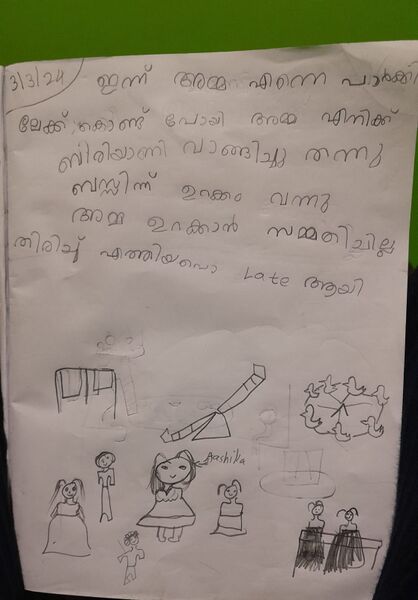 3/3/24 ഇന്ന് അമ്മ എന്നെ പാർക്കി
ലേക്ക് കൊണ്ട് പോയി അമ്മ എനിക്ക്
ബിരിയാണി വാങ്ങിച്ചു തന്നു
ബസ്സിന്ന് ഉറക്കം വന്നു
അമ്മ ഉറക്കാൻ സമ്മതിച്ചില്ല
തിരിച്ച് എത്തിയപൊ Late ആയി
Aashika